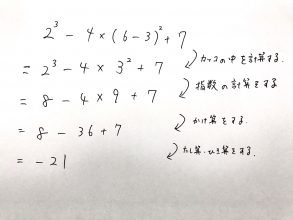 2³ - 4 × (6 - 3)² + 7
= 2³ - 4 × 3² + 7 カッコの中を計算する.
= 8 - 4 × 9 + 7 指数の計算をする.
= 8 - 36 + 7 かけ算をする.
= -21 たし算・ひき算をする.